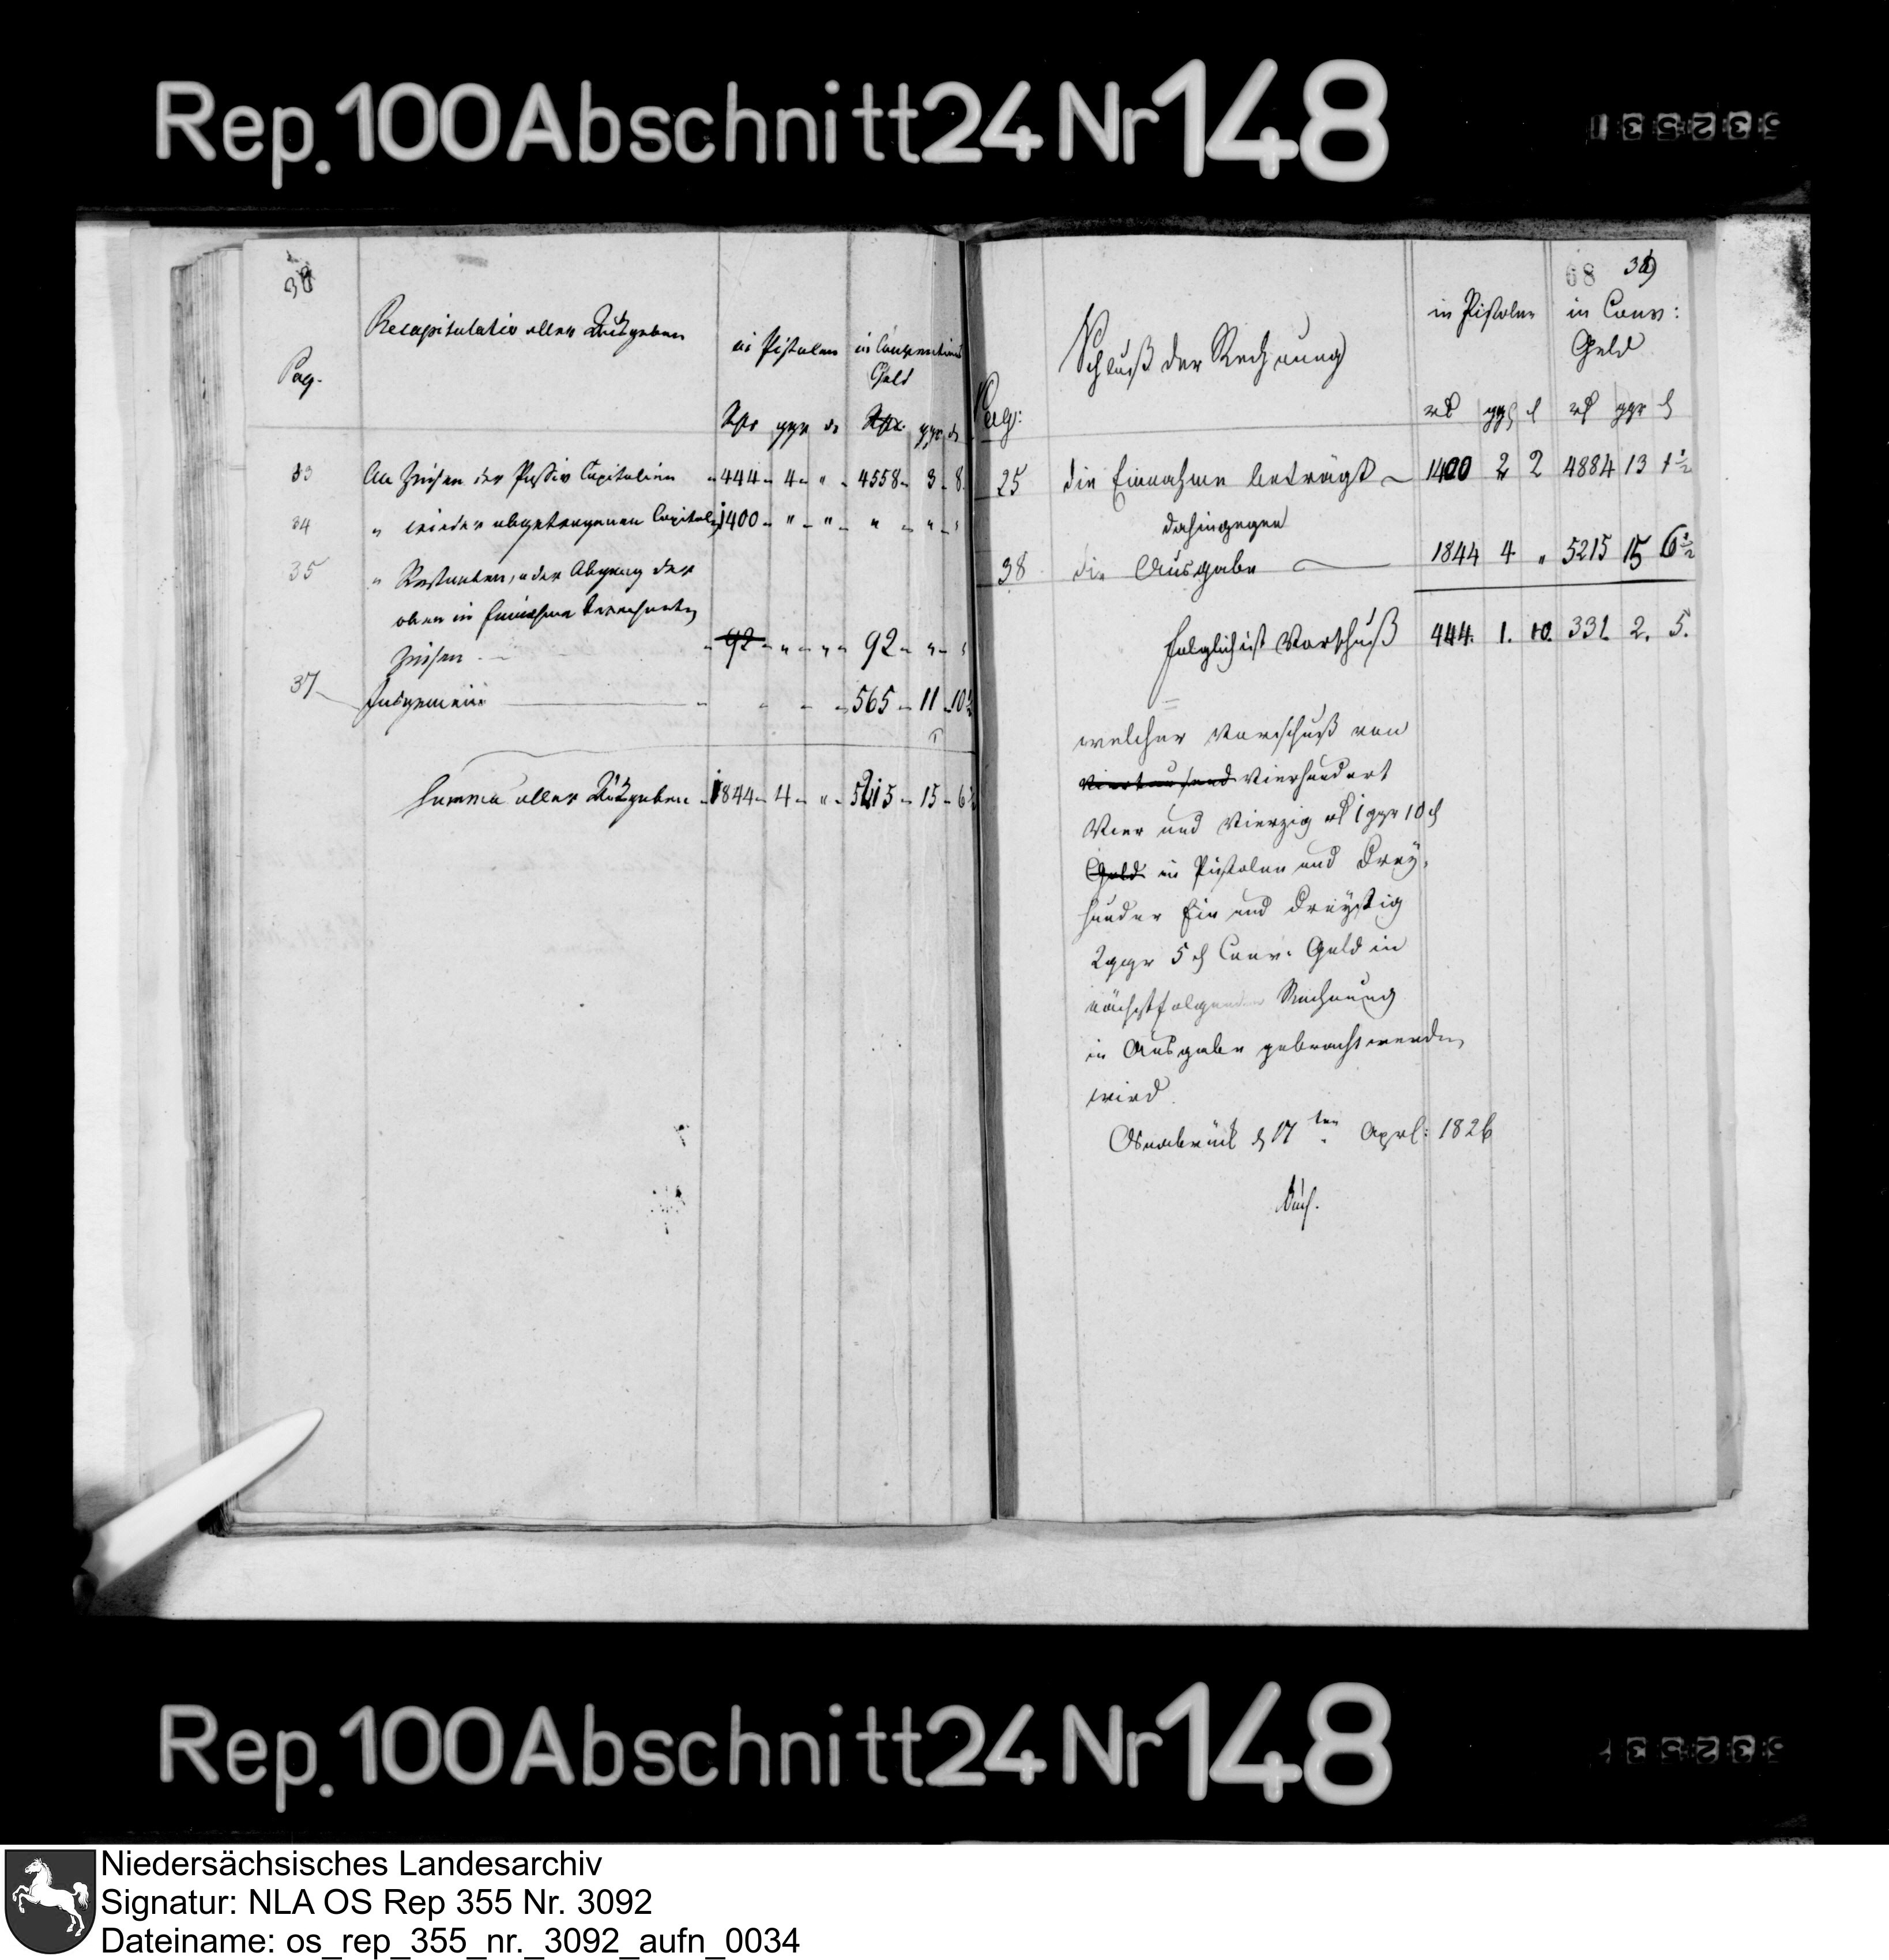 Rep. 100 Abschnitt 24 Nr 148
38
Recapitulatio aller Ausgaben
in Pistolen
in Conventions
Geld
Pag.
Rthr ggr d Rthr ggr d
33 An Zinsen der Passiv Capitalien 444 4 " 4558 3 8
34 " wieder abgetragenen Capitalien 1400 " " " " "
35 " Restanten, oder Abgang der
oben in Einnahme berechneten
Zinsen 92 " " 92 " "
37 Insgemein 565 11 10½
Summa aller Ausgaben 1844 4 " 5215 15 6½
68 39
in Pistolen
in Conv:
Geld
Schluß der Rechnung
Pag:
rt ggr d rt ggr d
25 die Einnahme beträgt 1400 2 2 4884 13 1½
dahingegen
38 die Ausgabe 1844 4 " 5215 15 6½
folglich ist Vorschuß 444. 1. 10. 331. 2. 5.
welcher Vorschuß von
Viertausend Vierhundert
Vier und Vierzig rt 1 ggr 10 d
Gold in Pistolen und Drey,
hunder Ein und Dreyßig
2 ggr 5 d Conv: Geld in
nächstfolgender Rechnung
in Ausgabe gebracht werden
wird
Osnabrück d 17ten Aprl: 1826
Rep. 100 Abschnitt 24 Nr 148
Niedersächsisches Landesarchiv
Signatur: NLA OS Rep 355 Nr. 3092
Dateiname: os_rep_355_nr._3092_aufn_0034